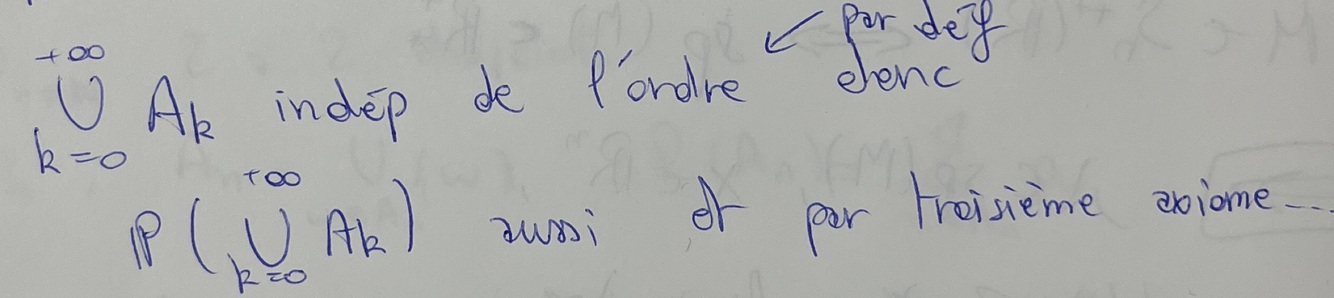 +∞
∪ A_k indép de l'ordre ↙ par déf donc
k=0
+∞
P(∪ A_k) aussi et par troisième axiome...
k=0